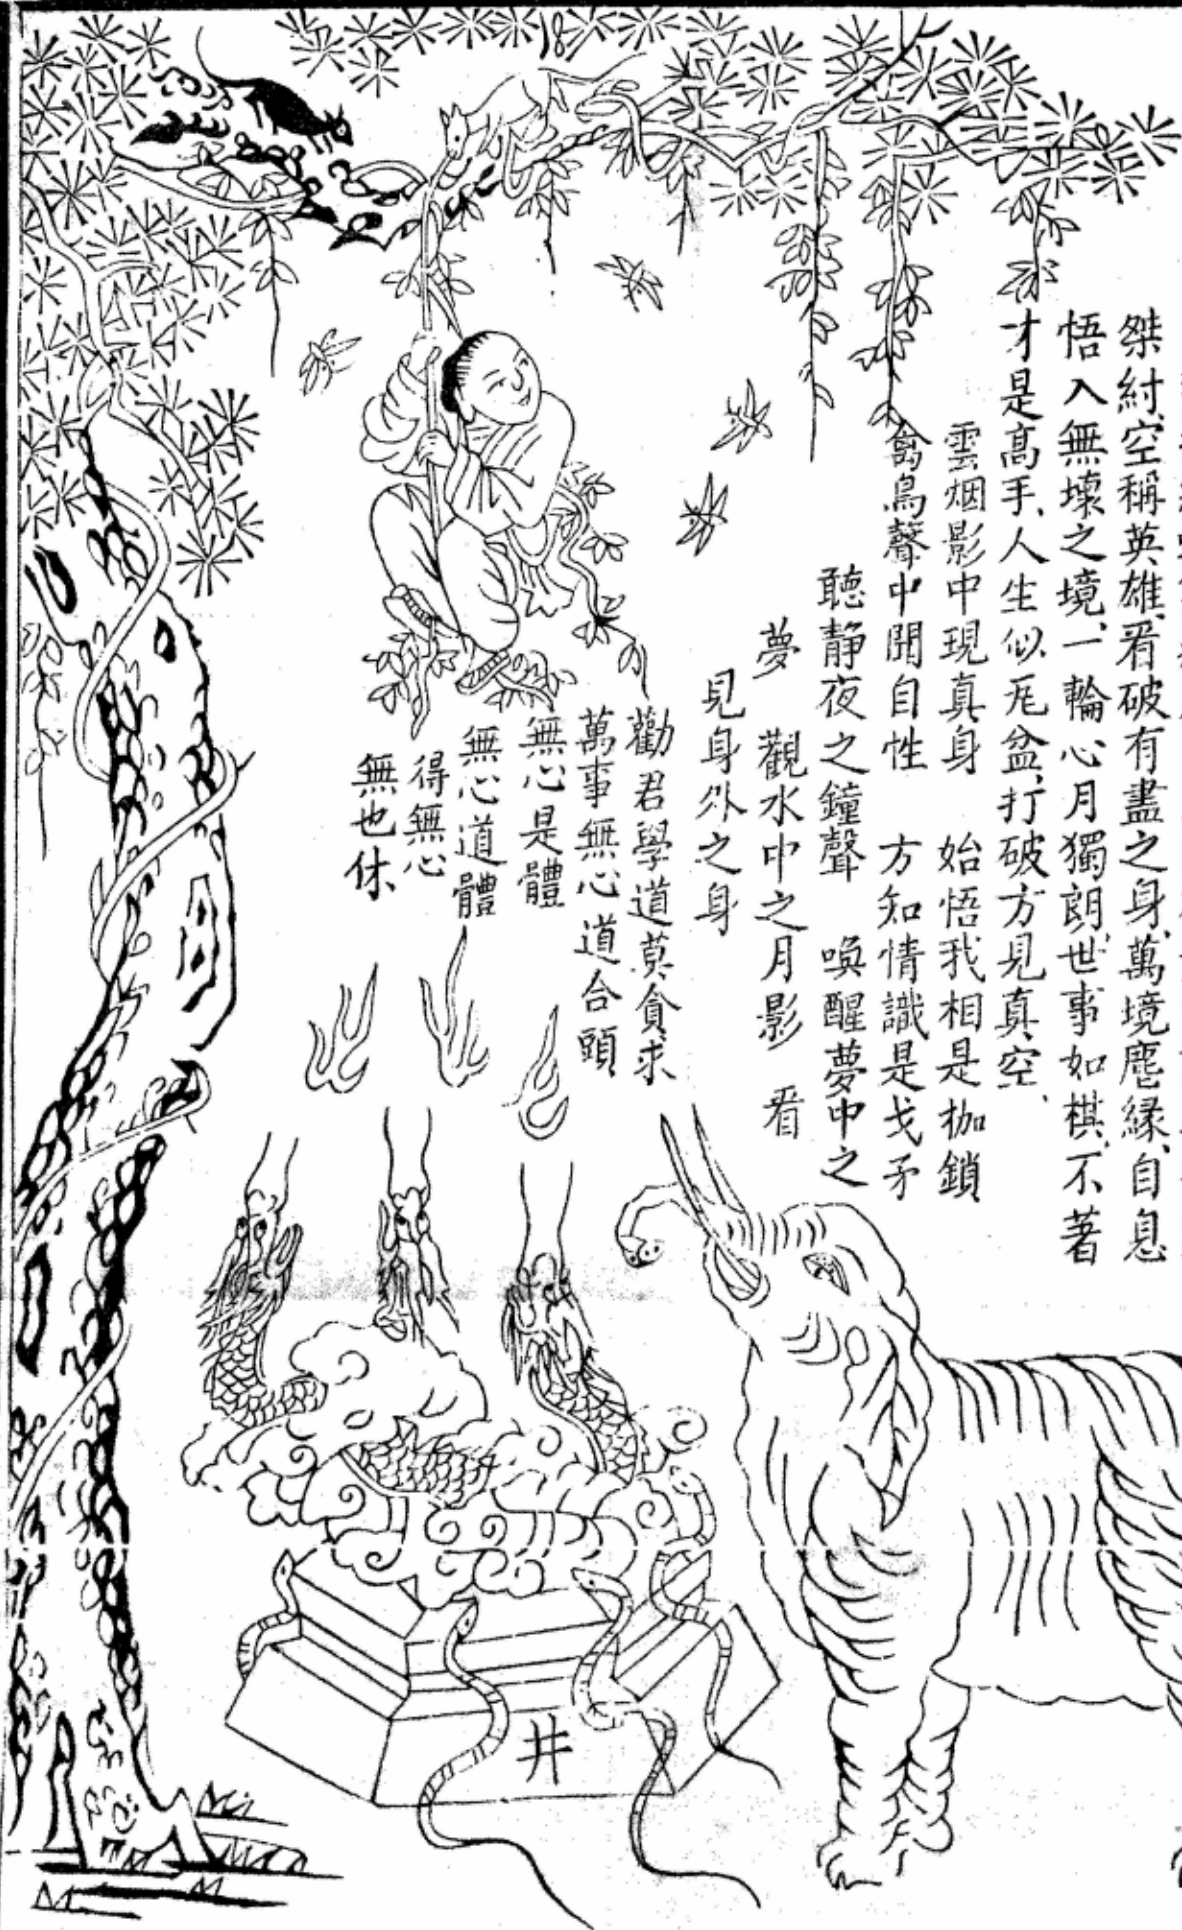 桀紂、空稱英雄、看破有盡之身、萬境塵緣、自息
悟入無壞之境、一輪心月獨朗、世事如棋、不著
才是高手、人生似瓦盆、打破方見真空、
雲烟影中現真身　始悟我相是枷鎖
禽鳥聲中聞自性　方知情識是戈矛
聽靜夜之鐘聲　喚醒夢中之
夢　觀水中之月影　看
見身外之身
勸君學道莫貪求
萬事無心道合頭
無心是體
無心道體
得無心
無也休
井